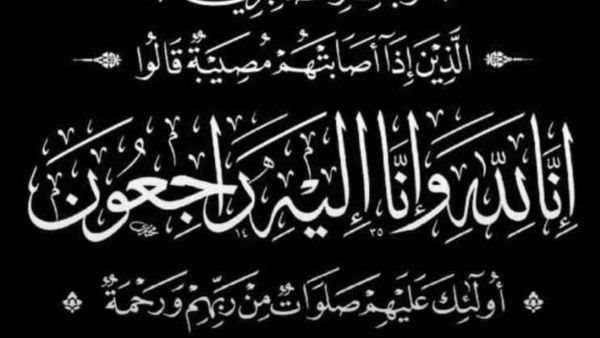 الَّذِينَ إِذَا أَصَابَتْهُمْ مُصِيبَةٌ قَالُوا
إِنَّا لِلَّهِ وَإِنَّا إِلَيْهِ رَاجِعُونَ
١٤ ٣٥
أُولَئِكَ عَلَيْهِمْ صَلَوَاتٌ مِنْ رَبِّهِمْ وَرَحْمَةٌ